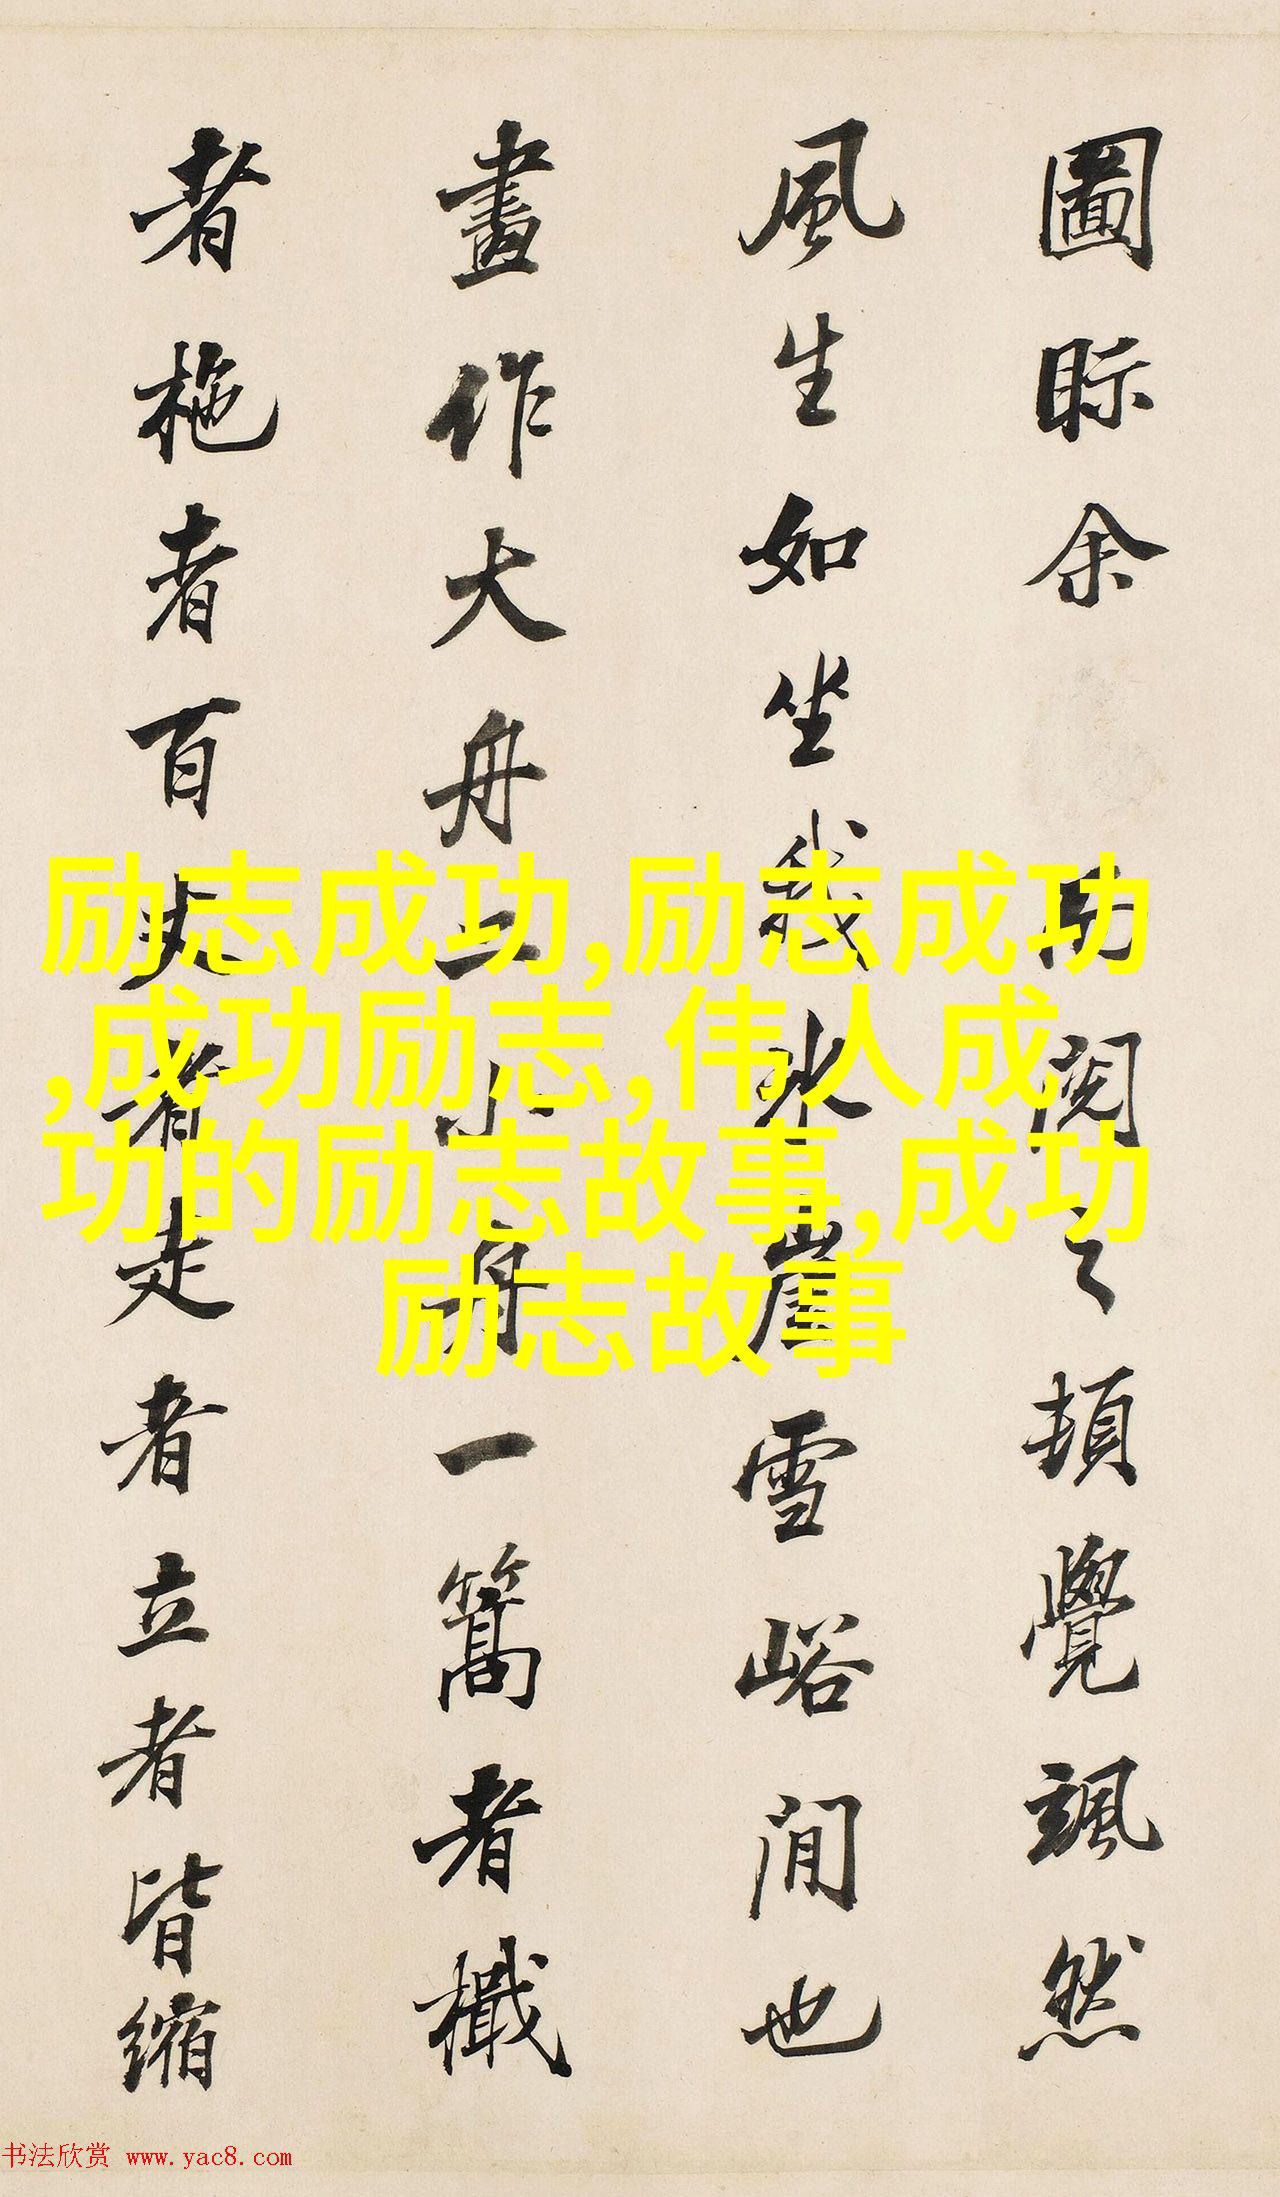 圖眎余閱之頓覺颯然
風生如坐我冰崖雪峪間也
畫作大舟二小舟一篙者檝
者柂者百丈者走者立者皆縮
励志成功,励志成功
,成功励志,伟人成
功的励志故事,成功
励志故事
书法欣赏 www.yac8.com